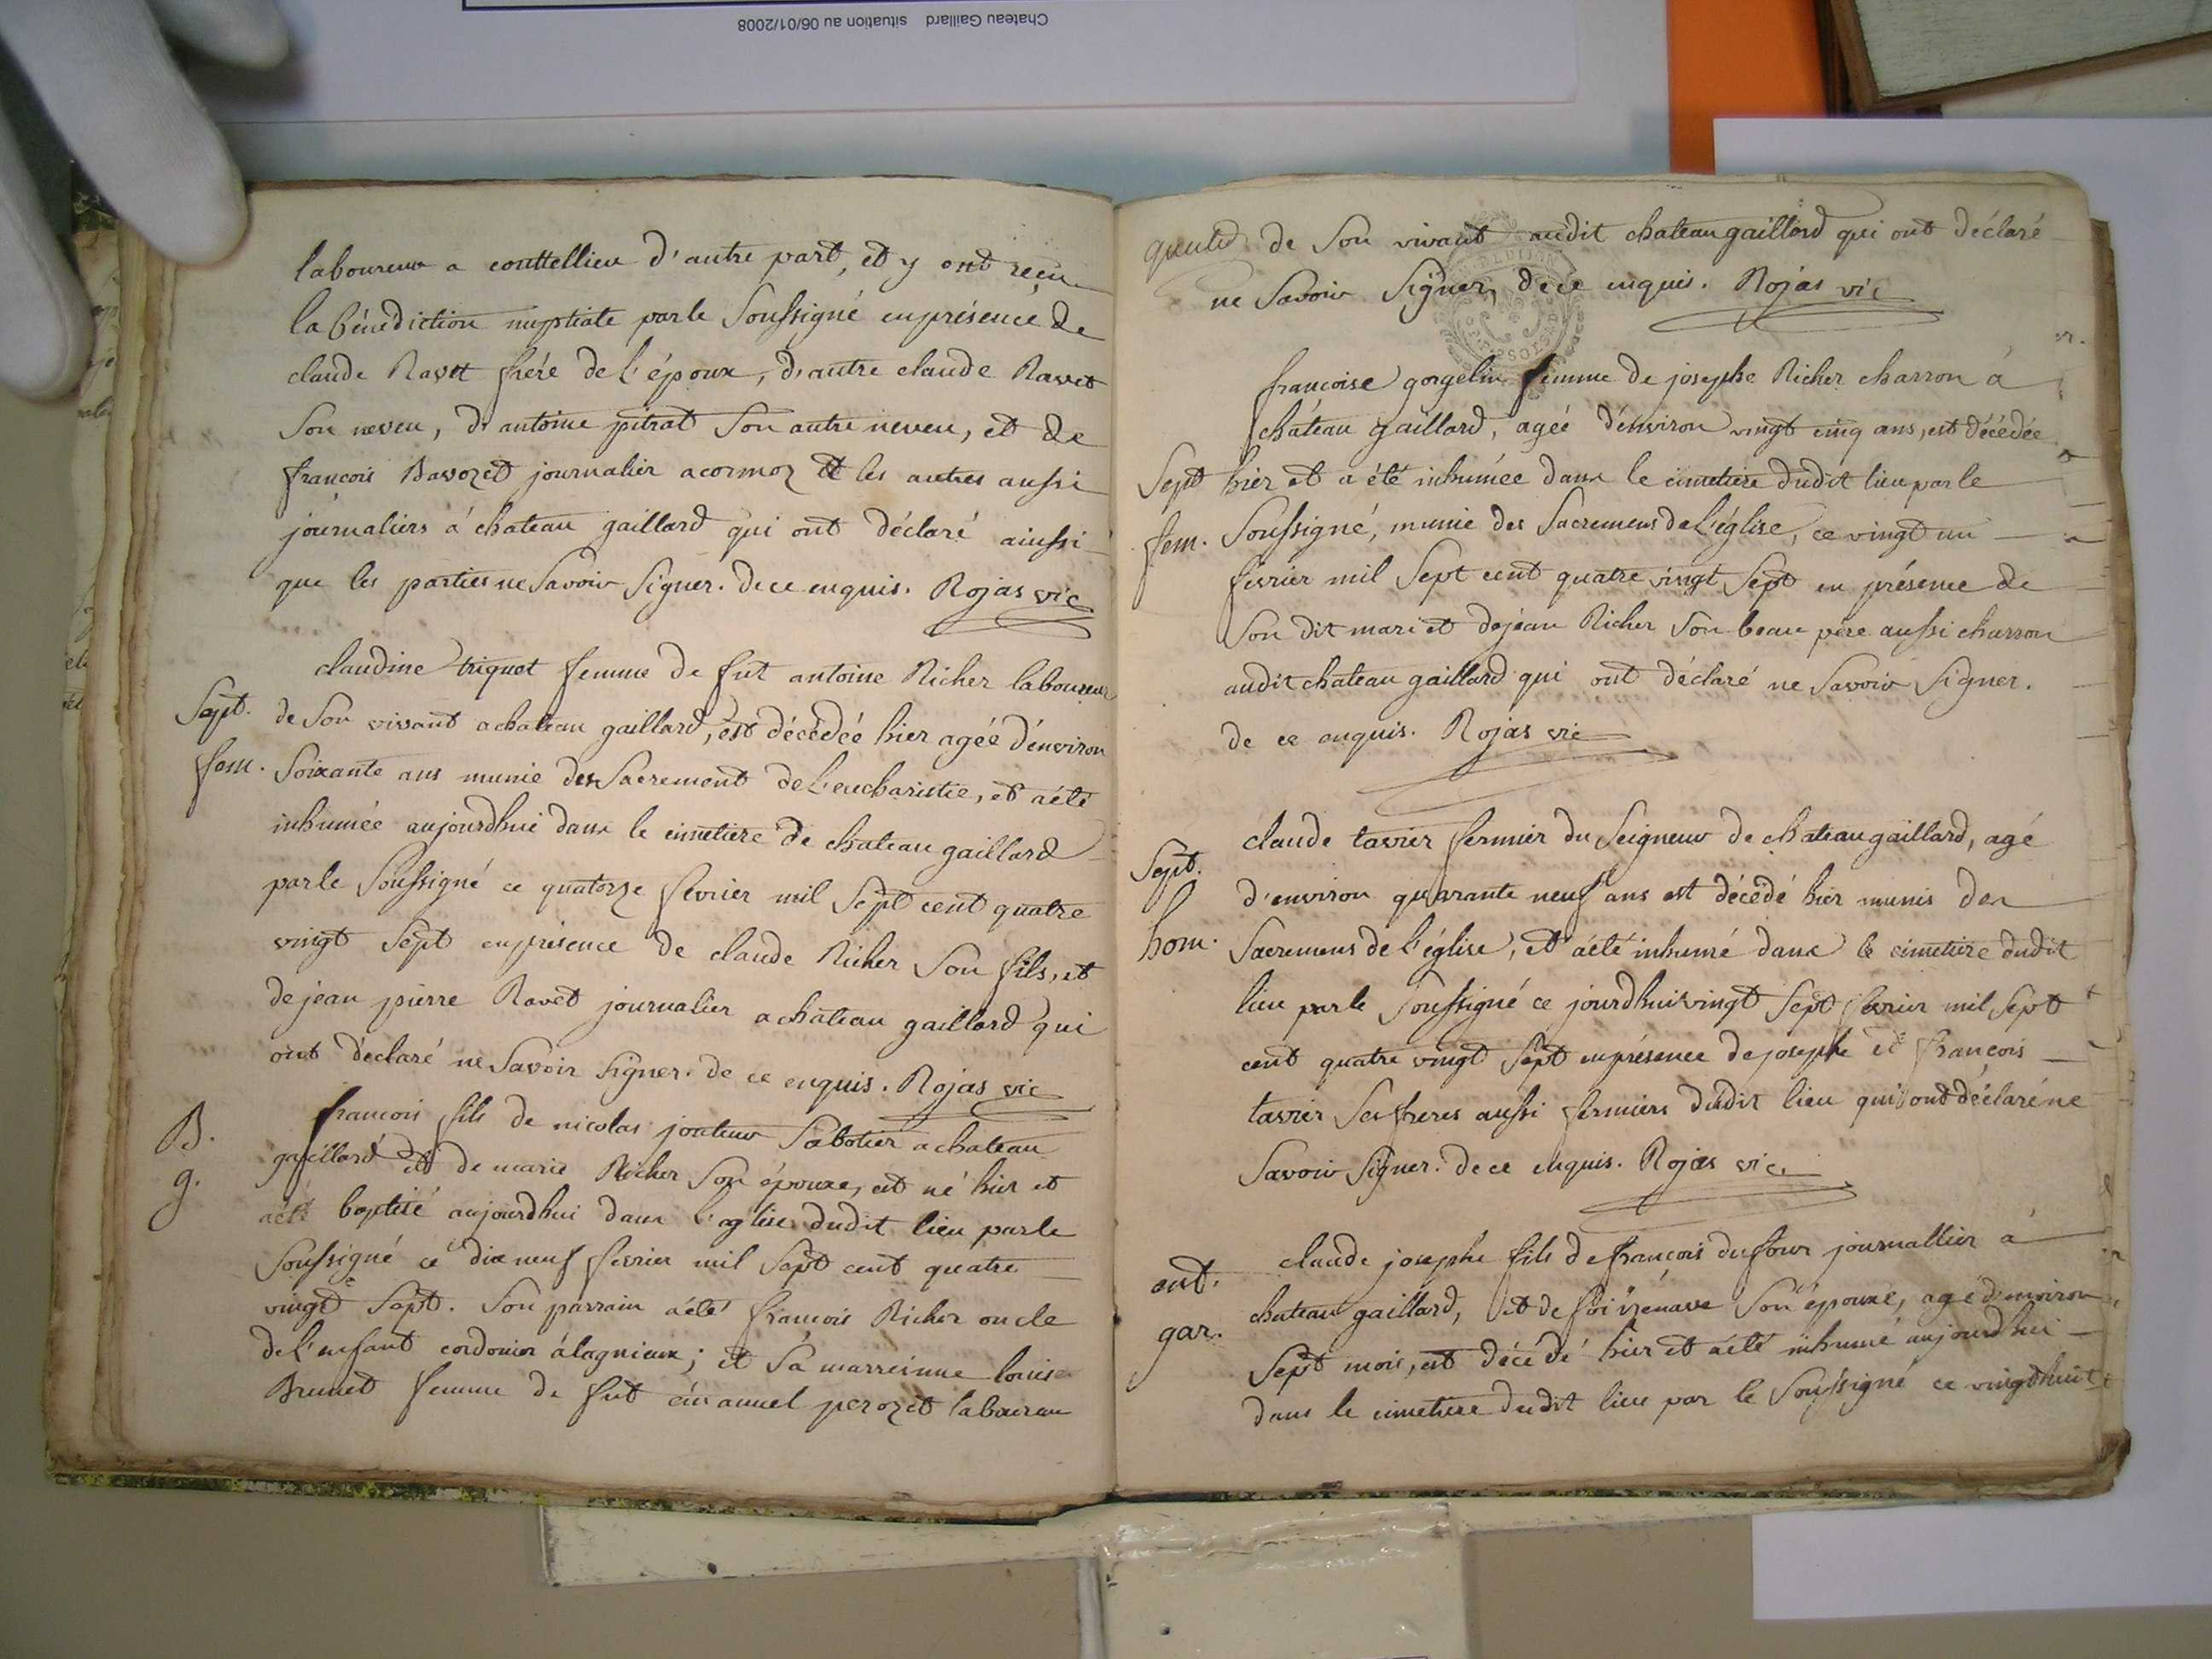 Chateau Gaillard situation au 06/01/2008
laboureur a couttellieu d'autre part, et y ont reçu
la bénédiction nuptiale par le soussigné en présence de
claude Ravet frére de l'époux, d'autre claude Ravet
son neveu, d'antoine pitrat son autre neveu, et de
françois Bavozet journalier a cormoz et les autres aussi
journaliers à chateau gaillard qui ont déclaré ainssi
que les parties ne savoir signer. de ce enquis. Rojas vic
claudine triquet femme de fut antoine Richer laboureur
Sept. de son vivant a chateau gaillard, est décédéé hier agéé d'environ
fem. soixante ans munie des sacrement de l'eucharistie, et a été
inhumée aujourdhui dans le cimetiere de chateau gaillard
par le soussigné ce quatorze fevrier mil sept cent quatre
vingt sept en présence de claude Richer son fils, et
de jean pierre Ravet journalier a chateau gaillard qui
ont déclaré ne savoir signer. de ce enquis. Rojas vic
B. francois fils de nicolas jouteur sabotier a chateau
g. gaillard et de marie Richer son épouxe, est né hier et
a été baptisé aujourdhui dans l'eglise dudit lieu par le
soussigné ce dixneuf fevrier mil sept cent quatre
vingt sept. son parrain a été francois Richer oncle
de l'enfant cordonier à lagnieux; et sa marreinne louise
Brunet femme de fut émanuel perozet laboureur
de son vivant audit chateau gaillard qui ont déclaré
ne savoir signer, de ce enquis. Rojas vic
francoise gorgelin femme de josephe Richer charron à
château gaillard, agéé d'environ vingt cinq ans, est décédée
Sept hier et a été inhumée dans le cimetiere dudit lieu par le
fem. soussigné, munie des sacremens de l'église, ce vingt un
fevrier mil sept cent quatre vingt sept en présence de
son dit mari et de jean Richer son beau pere aussi charron
audit chateau gaillard qui ont déclaré ne savoir signer.
de ce enquis. Rojas vic
claude tavier fermier du seigneur de chateau gaillard, agé
Sept. d'environ quarante neuf ans est décédé hier munis des
hom. sacremens de l'église, et a été inhumé dans le cimetiere dudit
lieu par le soussigné ce jourdhui vingt sept fevrier mil sept
cent quatre vingt sept en présence de josephe et françois
tavier ses freres aussi fermiers dudit lieu qui ont déclaré ne
savoir signer. de ce enquis. Rojas vic.
claude josephe fils de françois dufour journallier à
ent. chateau gaillard, et de son épouxe, agé d'environ
gar. sept mois, est décédé hier et a été inhumé aujourdhui
dans le cimetiere dudit lieu par le soussigné ce vingt huit